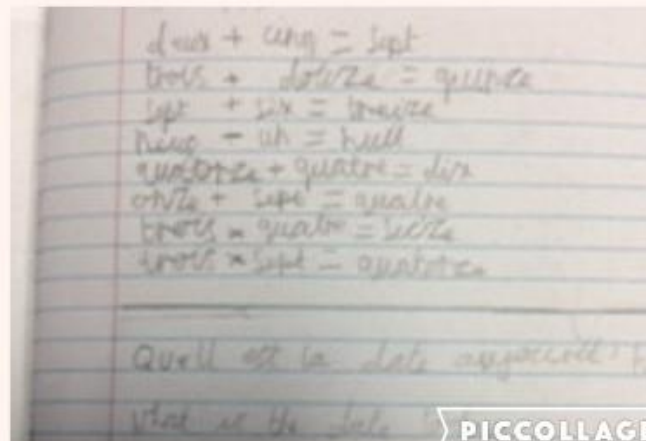 deux + cinq = sept
trois + douze = quinze
sept + six = treize
neuf - un = huit
quatorze + quatre = dix
onze + sept = quatre
trois × quatre = seize
trois × sept = quatorze
Quell est la date
What is the date
PICCOLLAGE